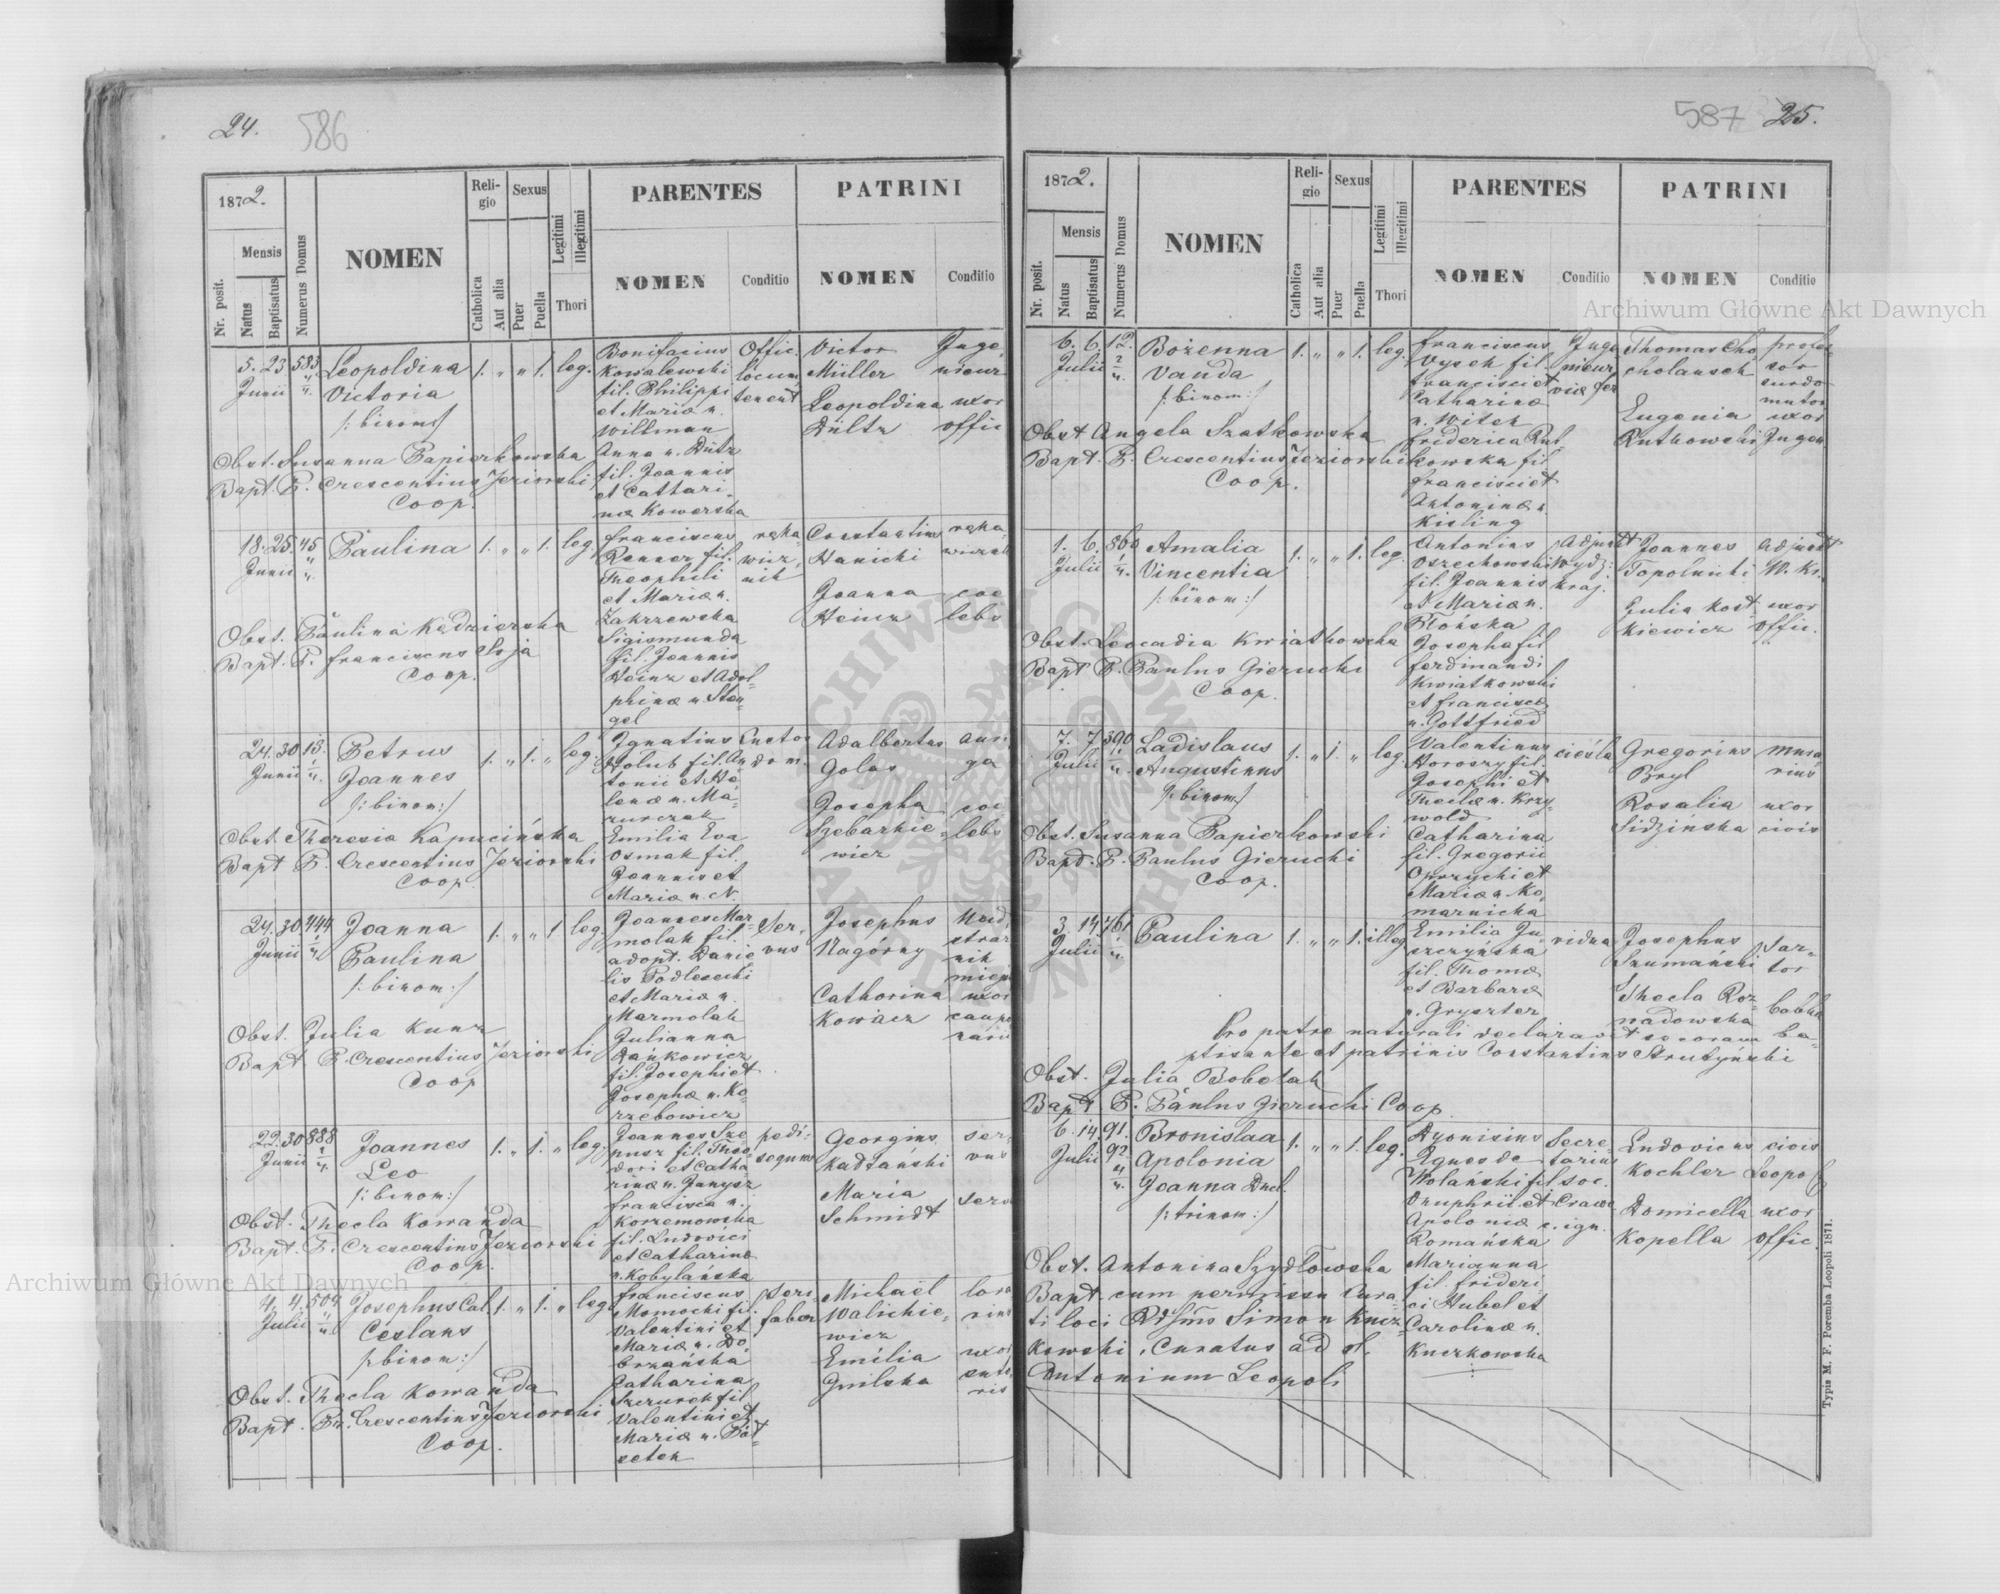 24. 586
1872.
Mensis
Nr. posit.
Natus
Baptisatus
Numerus Domus
NOMEN
Religio
Catholica
Aut alia
Sexus
Puer
Puella
Legitimi
Illegitimi
Thori
PARENTES
NOMEN
Conditio
PATRINI
NOMEN
Conditio
5. 23 583
Junii
Leopoldina
Victoria
/:binom:/
1. " " 1. leg.
Bonifacius
Kowalewski
fil. Philippi
et Mariæ n.
Willman
Anna n. Dültz
fil. Joannis
et Cattari-
næ Kowerska
Offic.
locum
tenent
Victor
Müller
Leopoldina
Dültz
Inge-
nieur
uxor
offic
Obst. Susanna Papierkowska
Bapt. P. Crescentius Jeziorski
Coop.
18. 25. 45
Junii
Paulina
1. " " 1. leg.
Franciscus
Renner fil.
Theophili
et Mariæ n.
Zakrzewska
Sigismunda
fil. Joannis
Heinz et Adol-
phinæ n. Sten-
gel
ręka-
wicz-
nik
Constantinus
Hanicki
Joanna
Heinz
coe
lebs
Obst. Paulina Kędzierska
Bapt. P. Franciscus
Coop.
24. 30 13.
Junii
Petrus
Joannes
/:binom:/
1. " 1. " leg.
Ignatius
Holub fil. An
tonii et He-
lenæ n. Ma-
zurczak
Emilia Eva
Osmak fil.
Joannis et
Mariæ n. N.
Adalbertus
Golas
Josepha
Szebarkie-
wicz
auri
ga
coe
lebs
Obst. Theresia Kapucińska
Bapt. P. Crescentius Jeziorski
Coop.
24. 30 444
Junii
Joanna
Paulina
/:binom:/
1. " " 1 leg.
Joannes Mar-
molak fil.
adopt. Danie
lis Podlesecki
et Mariæ n.
Marmolak
Julianna
Dańkowicz
fil. Josephi et
Josephæ n. Ko-
rzebowicz
Ser-
vus
Josephus
Nagórny
Catharina
Kowacz
uxor
Obst. Julia Kunz
Bapt. P. Crescentius Jeziorski
Coop
22. 30 888
Junii
Joannes
Leo
/:binom:/
1. " 1. " leg.
Joannes Sze
pusz fil. Theo-
dori et Catha
rinæ n. Janysz
Francisca n.
Korzemowska
fil. Ludovici
et Catharinæ
n. Kobylańska
pedi-
sequus
Georgius
Kadłański
Maria
Schmidt
ser-
vus
Obst. Thecla Kowanda
Bapt. P. Crescentius Jeziorski
Coop.
4. 4. 504
Julii
Josephus Cal.
Ceslaus
/:binom:/
1. " 1. " leg.
Franciscus
Momocki fil.
Valentini et
Mariæ n. Do-
brzańska
Catharina
Szczurek fil.
Valentini et
Mariæ n. Pat-
setek
faber
Michael
Walichie-
wicz
Emilia
Gnilska
uxor
Obst. Thecla Kowanda
Bapt. Pr. Crescentius Jeziorski
Coop.
587 25.
1872.
Mensis
Nr. posit.
Natus
Baptisatus
Numerus Domus
NOMEN
Religio
Catholica
Aut alia
Sexus
Puer
Puella
Legitimi
Illegitimi
Thori
PARENTES
NOMEN
Conditio
PATRINI
NOMEN
Conditio
6. 6. 12
Julii
Bożenna
Vanda
/:binom:/
1. " " 1. leg.
Franciscus
Vysek fil.
Francisci et
Catharinæ
n. Witek
Friderica Rut
kowska fil
Francisci et
Antoninæ n.
Kisling
Inge
nieur
viæ fer
Thomas Cho
cholausek
Eugenia
Rutkowski
profes
sor
surdo
mutor
uxor
Ingen
Obst Angela Szatkowska
Bapt. P. Crescentius Jeziorski
Coop.
1. 6. 860
Julii
Amalia
Vincentia
/:binom:/
1. " " 1. leg.
Antonius
Orzechowski
fil. Joannis
et Mariæ n.
Płońska
Josepha fil
Ferdinandi
Kwiatkowski
et Franciscæ
n. Gottfried
Adjunkt
wydz:
kraj.
Joannes
Topolnicki
Julia Kost
kiewicz
Adjunkt
W. Kr.
uxor
offic.
Obst. Leocadia Kwiatkowska
Bapt P. Paulus Gierucki
Coop.
7. 7 390
Julii
Ladislaus
Augustinus
/:binom:/
1. " 1. " leg.
Valentinus
Horoszy fil.
Josephi et
Theclæ n. Krzy-
wold
Catharina
fil. Gregorii
Oprzycki et
Mariæ n. Ko-
marnicka
cieśla
Gregorius
Bryl
Rosalia
Sidzińska
mura
rius
uxor
civis
Obst. Susanna Papierkowski
Bapt. P. Paulus Gierucki
Coop.
3. 14 761
Julii
Paulina
1. " " 1. illeg.
Emilia Ju-
szczyńska
fil. Thomæ
et Barbaræ
n. Gryszter
vidua
Josephus
Szumański
Thecla Roz-
nadowska
Sar-
tor
babka
Pro patre naturali declaravit se coram ba-
ptisante et patrinis Constantinus Strutyński
Obst. Julia Bobelak
Bapt. P. Paulus Gierucki Coop
6. 14. 91.
Julii 92
Bronislaa
Apolonia
Joanna Duel.
/:trinom:/
1. " " 1. leg.
Dyonisius
Egnes de
Wolański fil
Onuphrii et
Apoloniæ n.
Romańska
Marianna
fil. Frideri
ci Hubel et
Carolinæ n.
Kuczkowska
Secre
tarius
soc.
Crawa
ign.
Ludovicus
Kochler
Domicella
Kopella
civis
Leopol
uxor
offic
Obst. Antonina Szydłowska
Bapt. cum permissu Cura-
ti loci Rdsm̃s Simon Kucz-
kowski, Curatus ad S.
Antonium Leopoli
Typis M. F. Poremba Leopoli 1871.
Archiwum Główne Akt Dawnych
Archiwum Główne Akt Dawnych